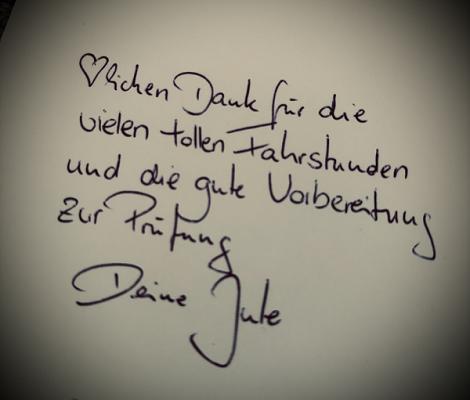 ♡lichen Dank für die
vielen tollen Fahrstunden
und die gute Vorbereitung
zur Prüfung
Deine Jule